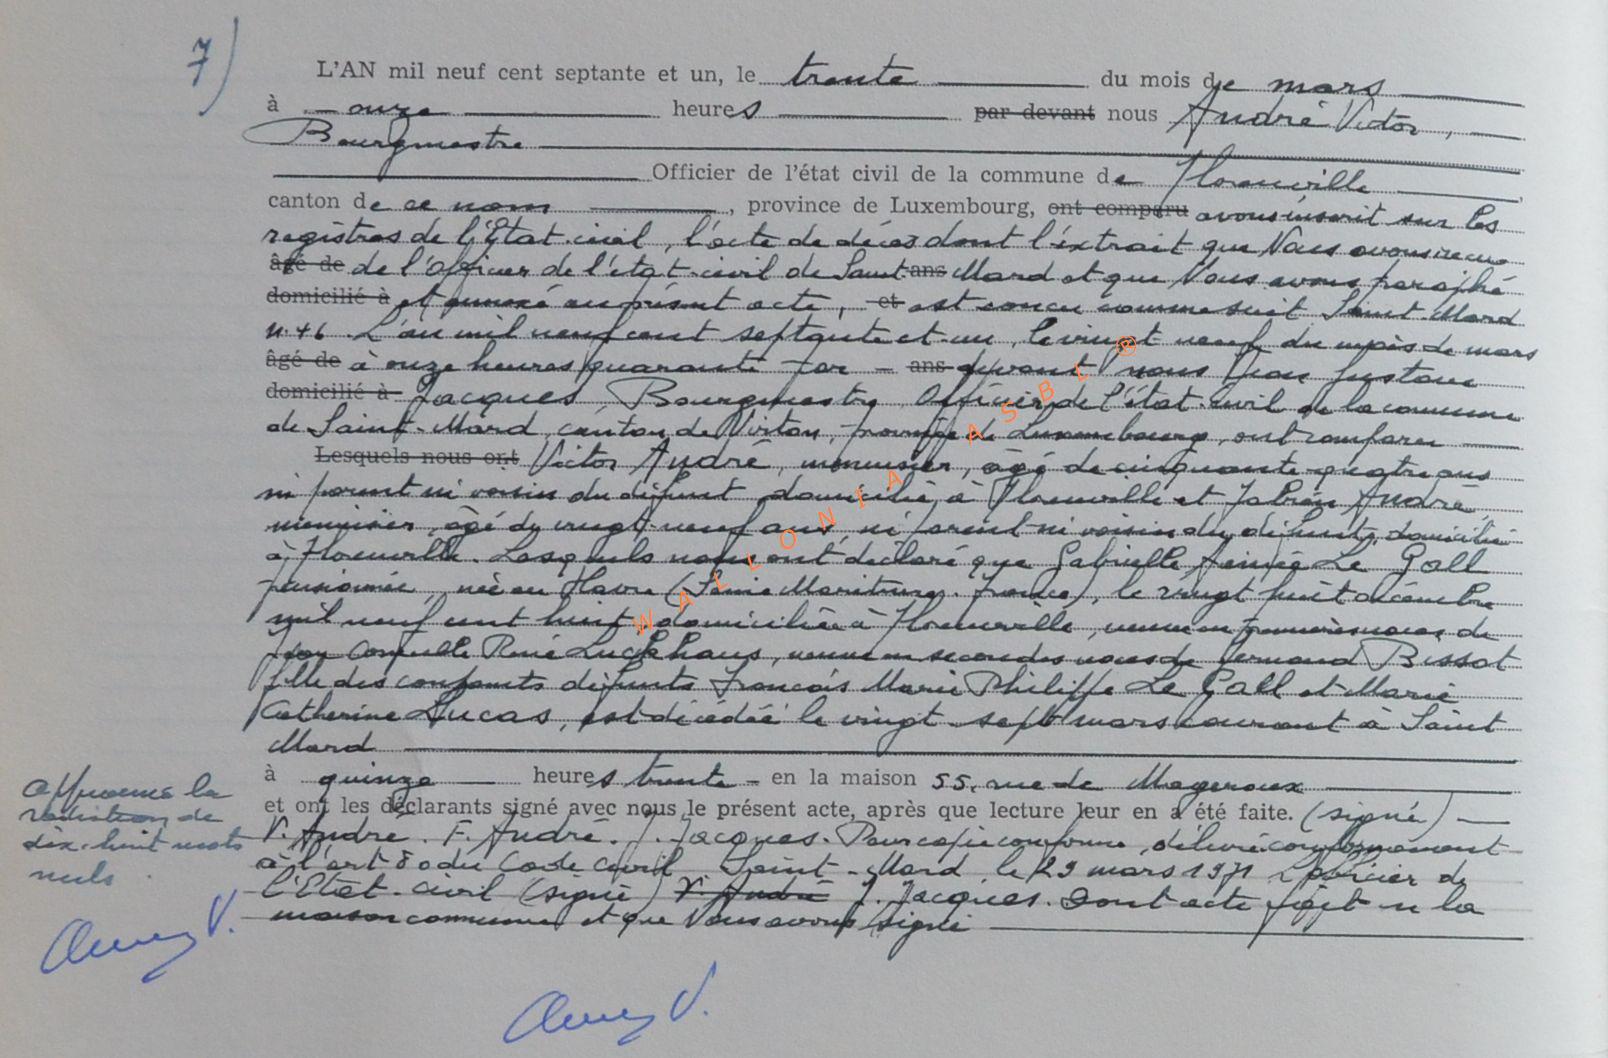 7)
L'AN mil neuf cent septante et un, le trente du mois de mars
à onze heures par devant nous André Victor,
Bourgmestre
Officier de l'état civil de la commune de Florenville
canton de ce nom, province de Luxembourg, ont comparu avons inscrit sur les
registres de l'Etat-civil, l'acte de décès dont l'extrait que Nous avons recu
âgé de de l'officier de l'état-civil de Saint ans Mard et que Nous avons paraphé
domicilié à et annexé au présent acte, et est concu comme suit Saint-Mard
n. 46. L'an mil neuf cent septante et un, le vingt neuf du mois de mars
âgé de à onze heures quarante par - ans devant nous Jean Gustave
domicilié à Jacques, Bourgmestre, Officier de l'état-civil de la commune
de Saint-Mard, canton de Virton, province de Luxembourg, ont comparu
Lesquels nous ont Victor André, menuisier, âgé de cinquante-quatre ans
ni parent ni voisin du défunt domicilié à Florenville et Fabien André,
menuisier, âgé de vingt-neuf ans, ni parent ni voisin du défunt, domicilié
à Florenville. Lesquels nous ont déclaré que Gabrielle Aimée Le Gall
pensionnée, née au Havre (Seine Maritime. France), le vingt huit décembre
mil neuf cent huit, domiciliée à Florenville, veuve en premières noces de
René Luckhaus, veuve en secondes noces de Fernand Bissot
fille des conjoints défunts Francois Marie Philippe Le Gall et Marie
Catherine Lucas, est décédée le vingt-sept mars courant à Saint
Mard
à quinze heures trente - en la maison 55, rue de Mageroux
et ont les déclarants signé avec nous le présent acte, après que lecture leur en a été faite. (signé)
V. André. F. André. J. Jacques. Pour copie conforme, délivré conformément
à l'art 80 du Code Civil Saint-Mard, le 29 mars 1971 L'officier de
l'Etat-civil (signé) V. André J. Jacques. Dont acte fait en la
maison communale et que Nous avons signé
Approuvé la
radiation de
dix-huit mots
nuls.
V.
V.
WALLONIA ASBL ®